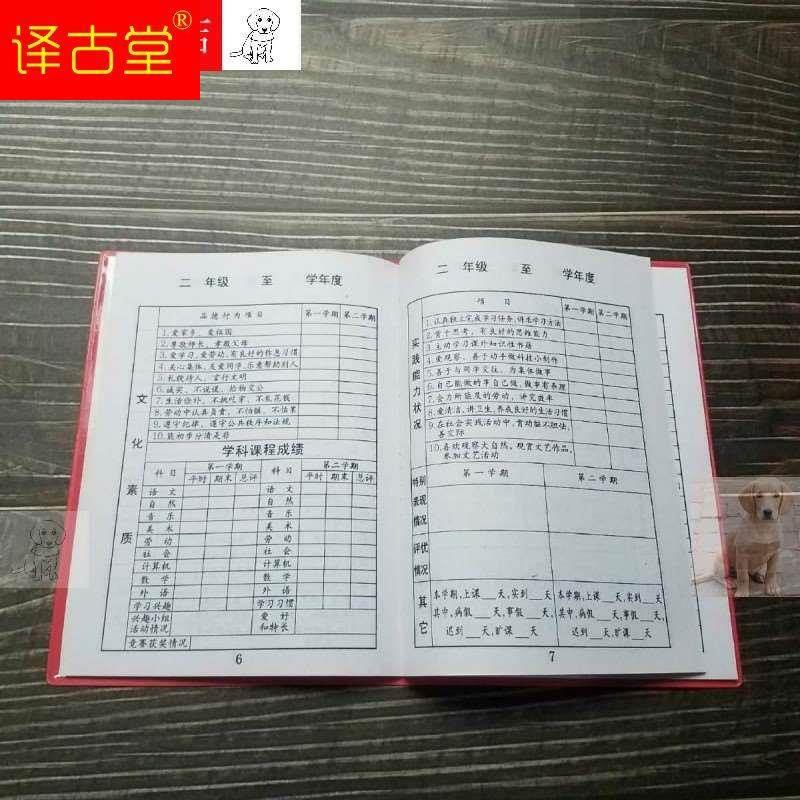 译古堂®
二 年级 至 学年度
品德行为项目 第一学期 第二学期
1.爱家乡、爱祖国
2.尊敬师长、孝敬父母
3.爱学习、爱劳动、有良好的作息习惯
4.关心集体、友爱同学、乐意帮助别人
5.礼貌待人、言行文明
6.诚实、不说谎、拾物交公
7.生活俭朴、不挑吃穿、不乱花钱
8.劳动中认真负责、不怕脏、不怕累
9.遵守纪律、遵守公共秩序和法规
10.能初步分清是非
文化素质
学科课程成绩
科目 第一学期 科目 第二学期
平时 期末 总评 平时 期末 总评
语文 语文
自然 自然
音乐 音乐
美术 美术
劳动 劳动
社会 社会
计算机 计算机
数学 数学
外语 外语
学习兴趣 学习习惯
兴趣小组 爱好
活动情况 和特长
竞赛获奖情况
6
二 年级 至 学年度
项目 第一学期 第二学期
实践能力状况
1.认真独立完成学习任务,讲求学习方法
2.肯于思考,有良好的思维能力
3.主动学习课外知识性书籍
4.爱观察、善于动手做科技小制作
5.善于与同学交往,为集体做事
6.自己能做的事自己做,做事有条理
7.会力所能及的劳动,讲究效率
8.爱清洁、讲卫生、养成良好的生活习惯
9.在社会实践活动中,肯动脑不胆怯、
善交际
10.喜欢观察大自然,观赏文艺作品,
参加文艺活动
特别表现情况
第一学期 第二学期
评优情况
其它
本学期,上课___天,实到___天 本学期,上课___天,实到___天
其中,病假___天,事假___天, 其中,病假___天,事假___天,
迟到___天,旷课___天 迟到___天,旷课___天
7